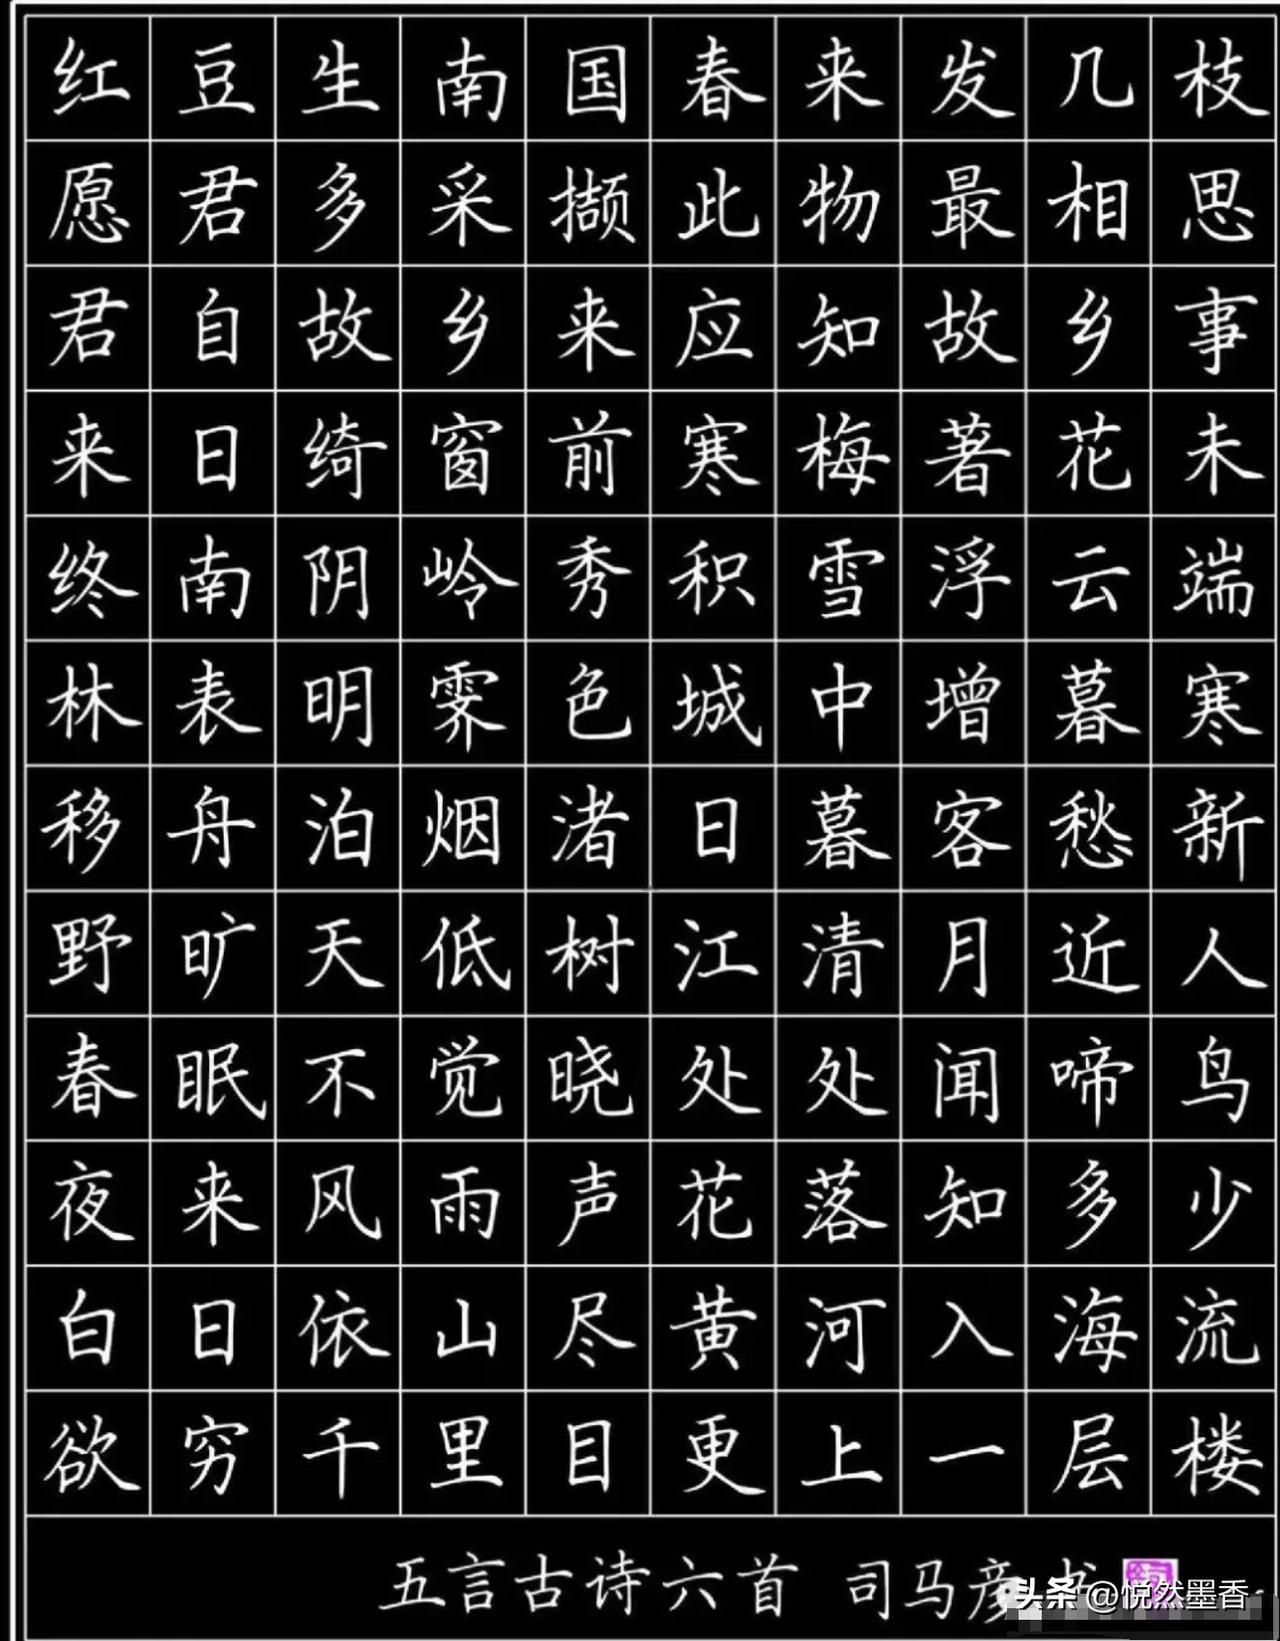 红豆生南国春来发几枝
愿君多采撷此物最相思
君自故乡来应知故乡事
来日绮窗前寒梅著花未
终南阴岭秀积雪浮云端
林表明霁色城中增暮寒
移舟泊烟渚日暮客愁新
野旷天低树江清月近人
春眠不觉晓处处闻啼鸟
夜来风雨声花落知多少
白日依山尽黄河入海流
欲穷千里目更上一层楼
五言古诗六首 司马彦书
头条@悦然墨香